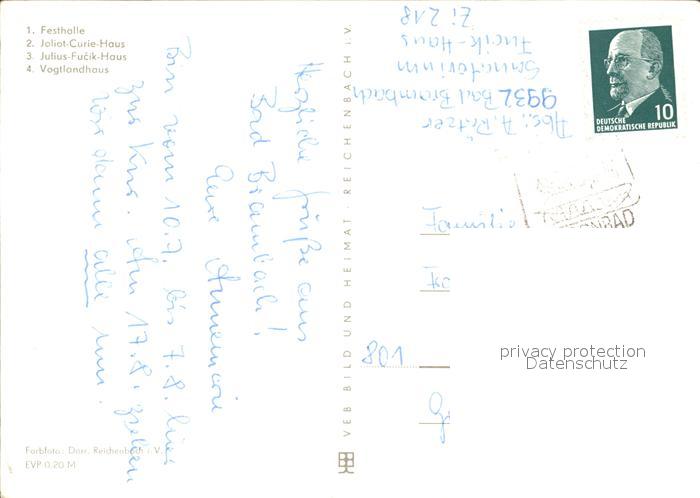 1. Festhalle
2. Joliot-Curie-Haus
3. Julius-Fučik-Haus
4. Vogtlandhaus
Herzliche Grüße aus
Bad Brambach!
Eure Annemarie
Bin vom 10.7. bis 7.8. hier
zur Kur. Am 17.8. ziehen
wir dann alle um.
Farbfoto: Darr, Reichenbach i. V.
EVP 0,20 M
VEB BILD UND HEIMAT · REICHENBACH i. V.
Abs: A.
9932 Bad Brambach
Sanatorium
Fucik-Haus
Zi 218
10
DEUTSCHE
DEMOKRATISCHE REPUBLIK
Familie
801
privacy protection
Datenschutz